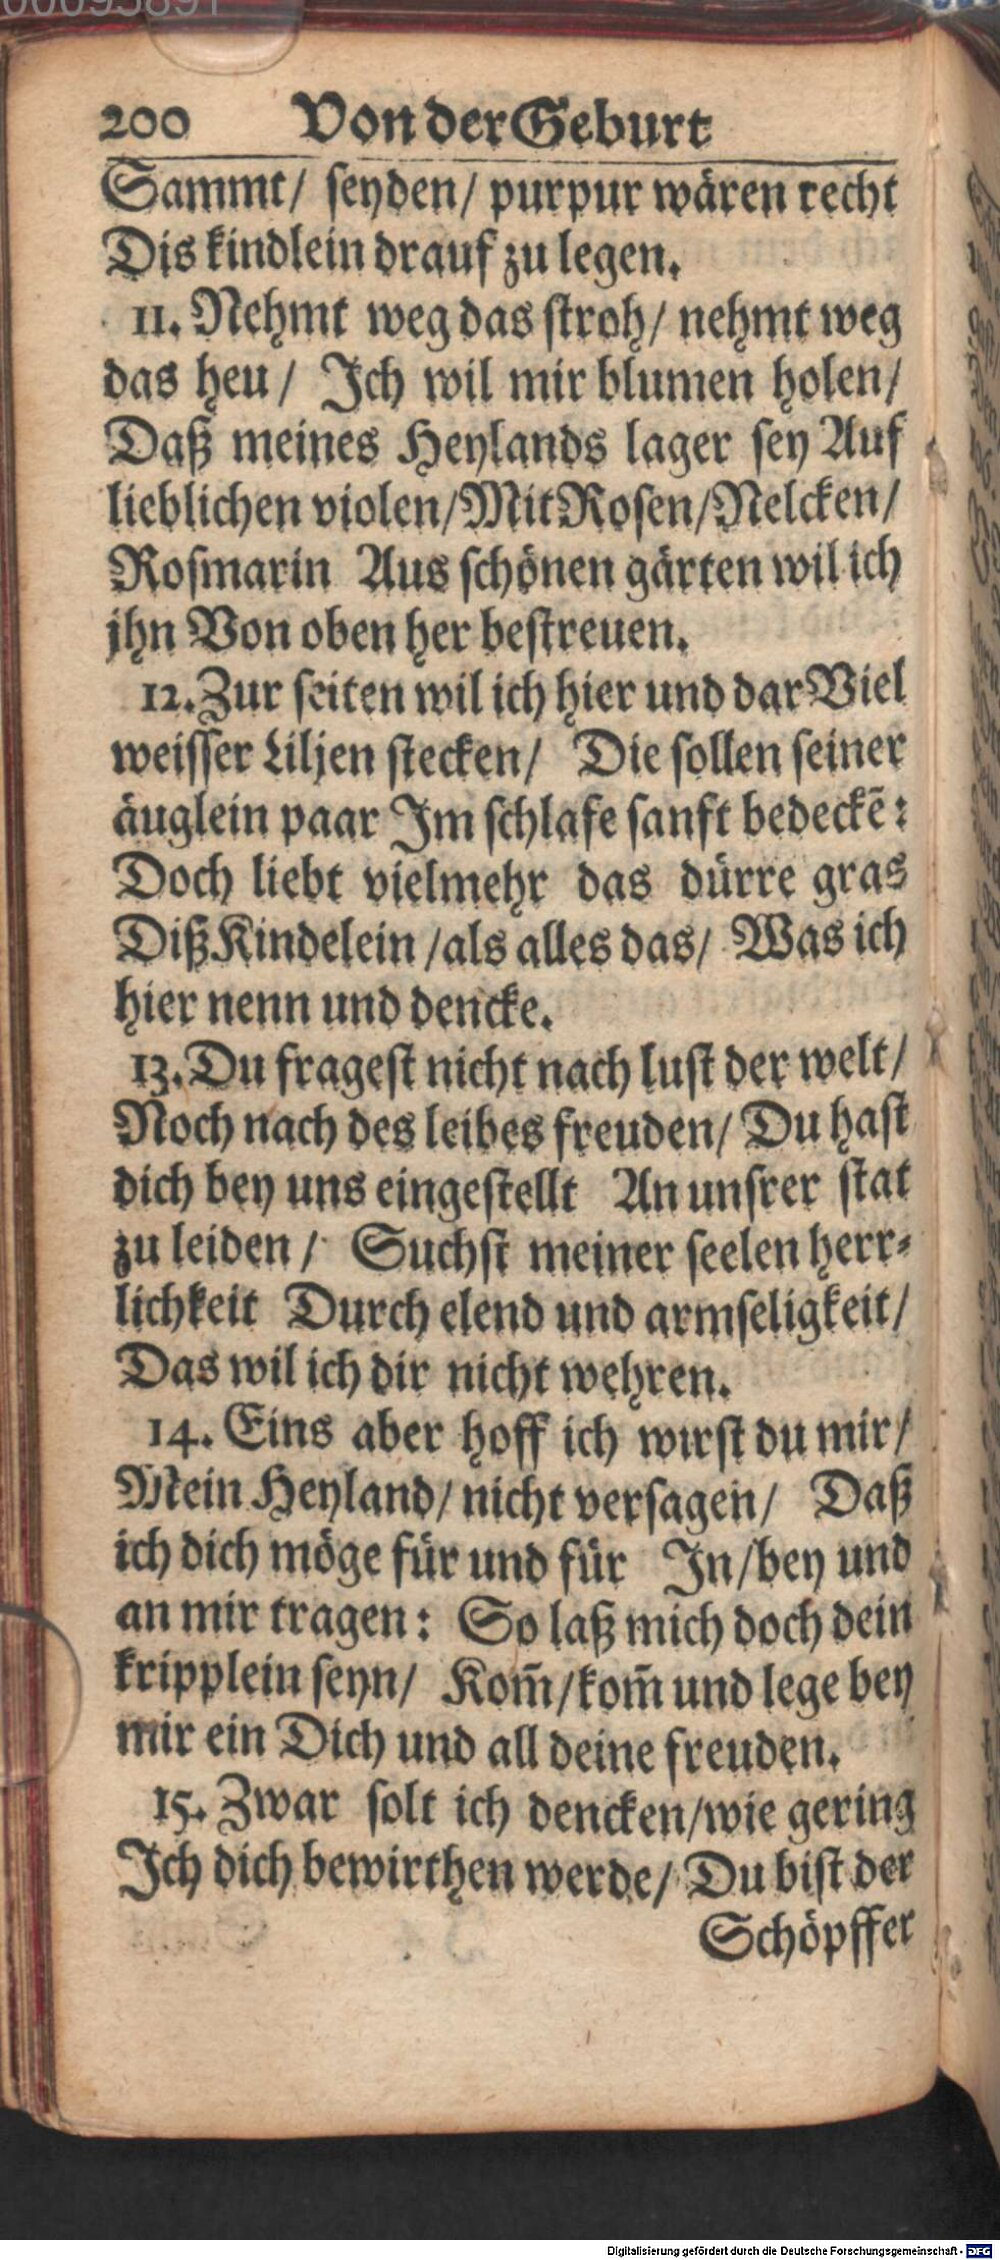 00095891
200 Von der Geburt
Sammt/ seyden/ purpur wären recht
Dis kindlein drauf zu legen.
11. Nehmt weg das stroh/ nehmt weg
das heu/ Ich wil mir blumen holen/
Daß meines Heylands lager sey Auf
lieblichen violen/Mit Rosen/Nelcken/
Rosmarin Aus schönen gärten wil ich
jhn Von oben her bestreuen.
12. Zur seiten wil ich hier und dar Viel
weisser Liljen stecken/ Die sollen seiner
äuglein paar Im schlafe sanft bedeckē:
Doch liebt vielmehr das dürre gras
Diß Kindelein/als alles das/ Was ich
hier nenn und dencke.
13. Du fragest nicht nach lust der welt/
Noch nach des leibes freuden/ Du hast
dich bey uns eingestellt An unsrer stat
zu leiden/ Suchst meiner seelen herr-
lichkeit Durch elend und armseligkeit/
Das wil ich dir nicht wehren.
14. Eins aber hoff ich wirst du mir/
Mein Heyland/ nicht versagen/ Daß
ich dich möge für und für In/bey und
an mir tragen: So laß mich doch dein
kripplein seyn/ Kom̄/kom̄ und lege bey
mir ein Dich und all deine freuden.
15. Zwar solt ich dencken/wie gering
Ich dich bewirthen werde/ Du bist der
Schöpffer
Digitalisierung gefördert durch die Deutsche Forschungsgemeinschaft - DFG